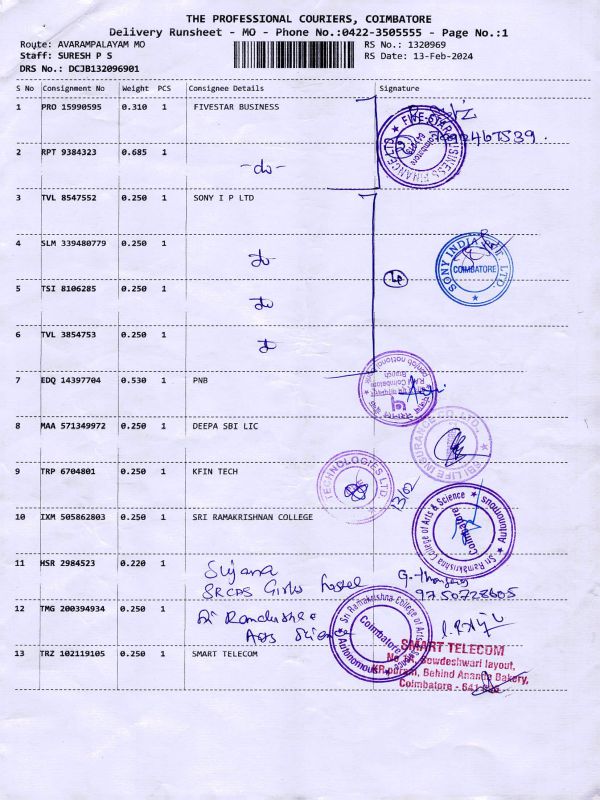 THE PROFESSIONAL COURIERS, COIMBATORE
Delivery Runsheet - MO - Phone No.:0422-3505555 - Page No.:1
Route: AVARAMPALAYAM MO RS No.: 1320969
Staff: SURESH P S RS Date: 13-Feb-2024
DRS No.: DCJB132096901
S No Consignment No Weight PCS Consignee Details Signature
1 PRO 15990595 0.310 1 FIVESTAR BUSINESS
2 RPT 9384323 0.685 1 -do-
FIVE-STAR BUSINESS FINANCE LTD
Coimbatore
3 TVL 8547552 0.250 1 SONY I P LTD
4 SLM 339480779 0.250 1 do
SONY INDIA PVT. LTD.
COIMBATORE
5 TSI 8106285 0.250 1 do
6 TVL 3854753 0.250 1 do
7 EDQ 14397704 0.530 1 PNB
punjab national
Coimbatore
Branch
8 MAA 571349972 0.250 1 DEEPA SBI LIC
SBI LIFE INSURANCE CO. LTD.
9 TRP 6704801 0.250 1 KFIN TECH
TECHNOLOGIES LTD
13/02
10 IXM 505862803 0.250 1 SRI RAMAKRISHNAN COLLEGE
Sri Ramakrishna College of Arts & Science
Autonomous
Coimbatore
11 HSR 2984523 0.220 1 Sujana
SRCAS Girls hostel
9750728605
12 TMG 200394934 0.250 1 Sri Ramakrishna
Arts Science
Sri Ramakrishna College of Arts & Science
Autonomous
Coimbatore
13 TRZ 102119105 0.250 1 SMART TELECOM
SMART TELECOM
Gowdeshwari layout,
KR puram, Behind Ananda Bakery,
Coimbatore - 641